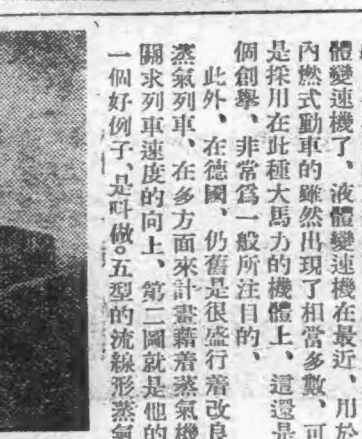 體變速機了、液體變速機在最近、用於
內燃式動車的雖然出現了相當多數、可
是採用在此種大馬力的機體上、這還是
個創舉、非常爲一般所注目的、
此外、在德國、仍舊是很盛行着改良
蒸氣列車、在多方面來計畫藉着蒸氣機
關求列車速度的向上、第二圖就是他的
一個好例子、是叫做。五型的流線形蒸氣